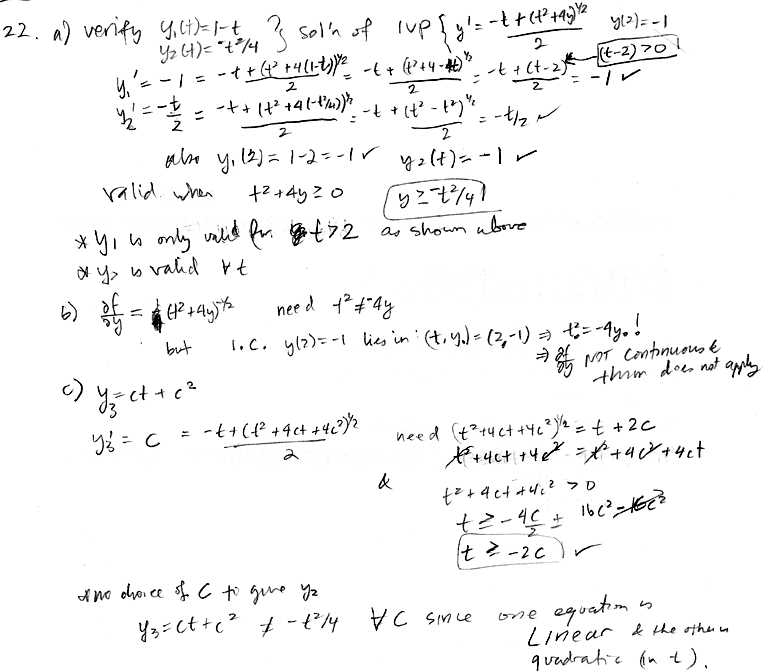 22. a) verify y₁(t)=1-t
y₂(t)=-t²/4 } sol'n of IVP { y' = (-t+(t²+4y)^½)/2 y(2)=-1
(t-2)>0
y₁' = -1 = (-t+(t²+4(1-t))^½)/2 = (-t+(t²+4-4t)^½)/2 = (-t+(t-2))/2 = -1 ✓
y₂' = -t/2 = (-t+(t²+4(-t²/4))^½)/2 = (-t+(t²-t²)^½)/2 = -t/2 ✓
also y₁(2)=1-2=-1 ✓ y₂(t)=-1 ✓
valid when t²+4y≥0 y≥-t²/4
* y₁ is only valid for t>2 as shown above
* y₂ is valid ∀t
b) ∂f/∂y = (t²+4y)^-½ need t²≠-4y
but I.C. y(2)=-1 lies in: (t₀,y₀)=(2,-1) ⇒ t₀²=-4y₀!
⇒ ∂f/∂y NOT continuous &
thm does not apply
c) y₃=ct+c²
y₃' = c = (-t+(t²+4ct+4c²)^½)/2 need (t²+4ct+4c²)^½ = t+2c
t²+4ct+4c² = t²+4c²+4ct
& t²+4ct+4c²>0
t≥-4c/2 ± 16c²-16c²
t≥-2c ✓
* no choice of C to give y₂
y₃=ct+c² ≠ -t²/4 ∀C since one equation is
Linear & the other is
quadratic (in t).